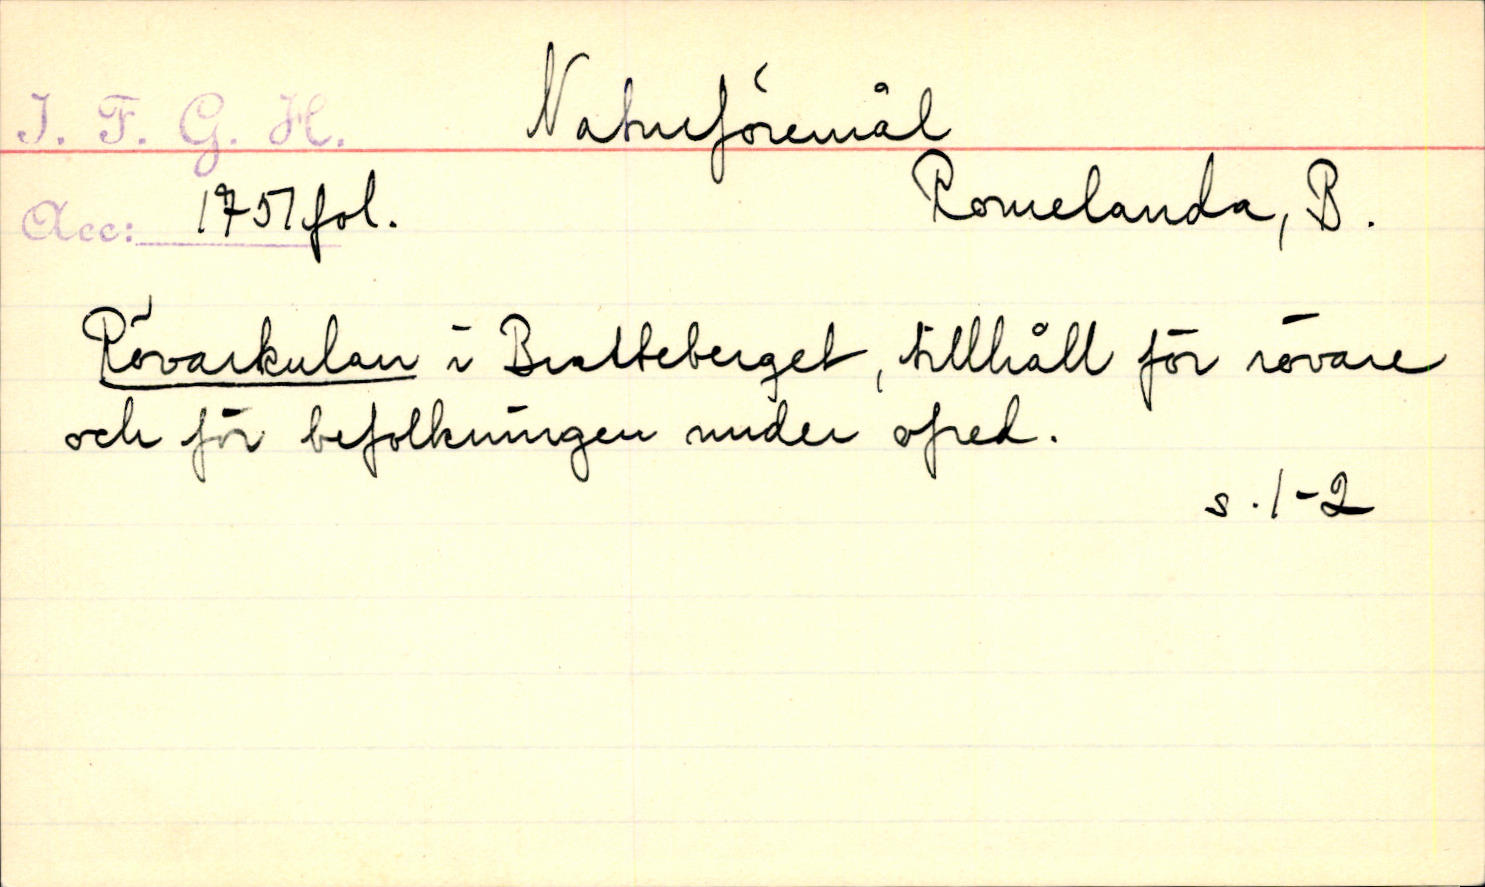 I. F. G. H.
Naturföremål
Acc: 1751 fol.
Romelanda, B.
Rövarkulan i Bratteberget, tillhåll för rövare
och för befolkningen under ofred.
s. 1-2